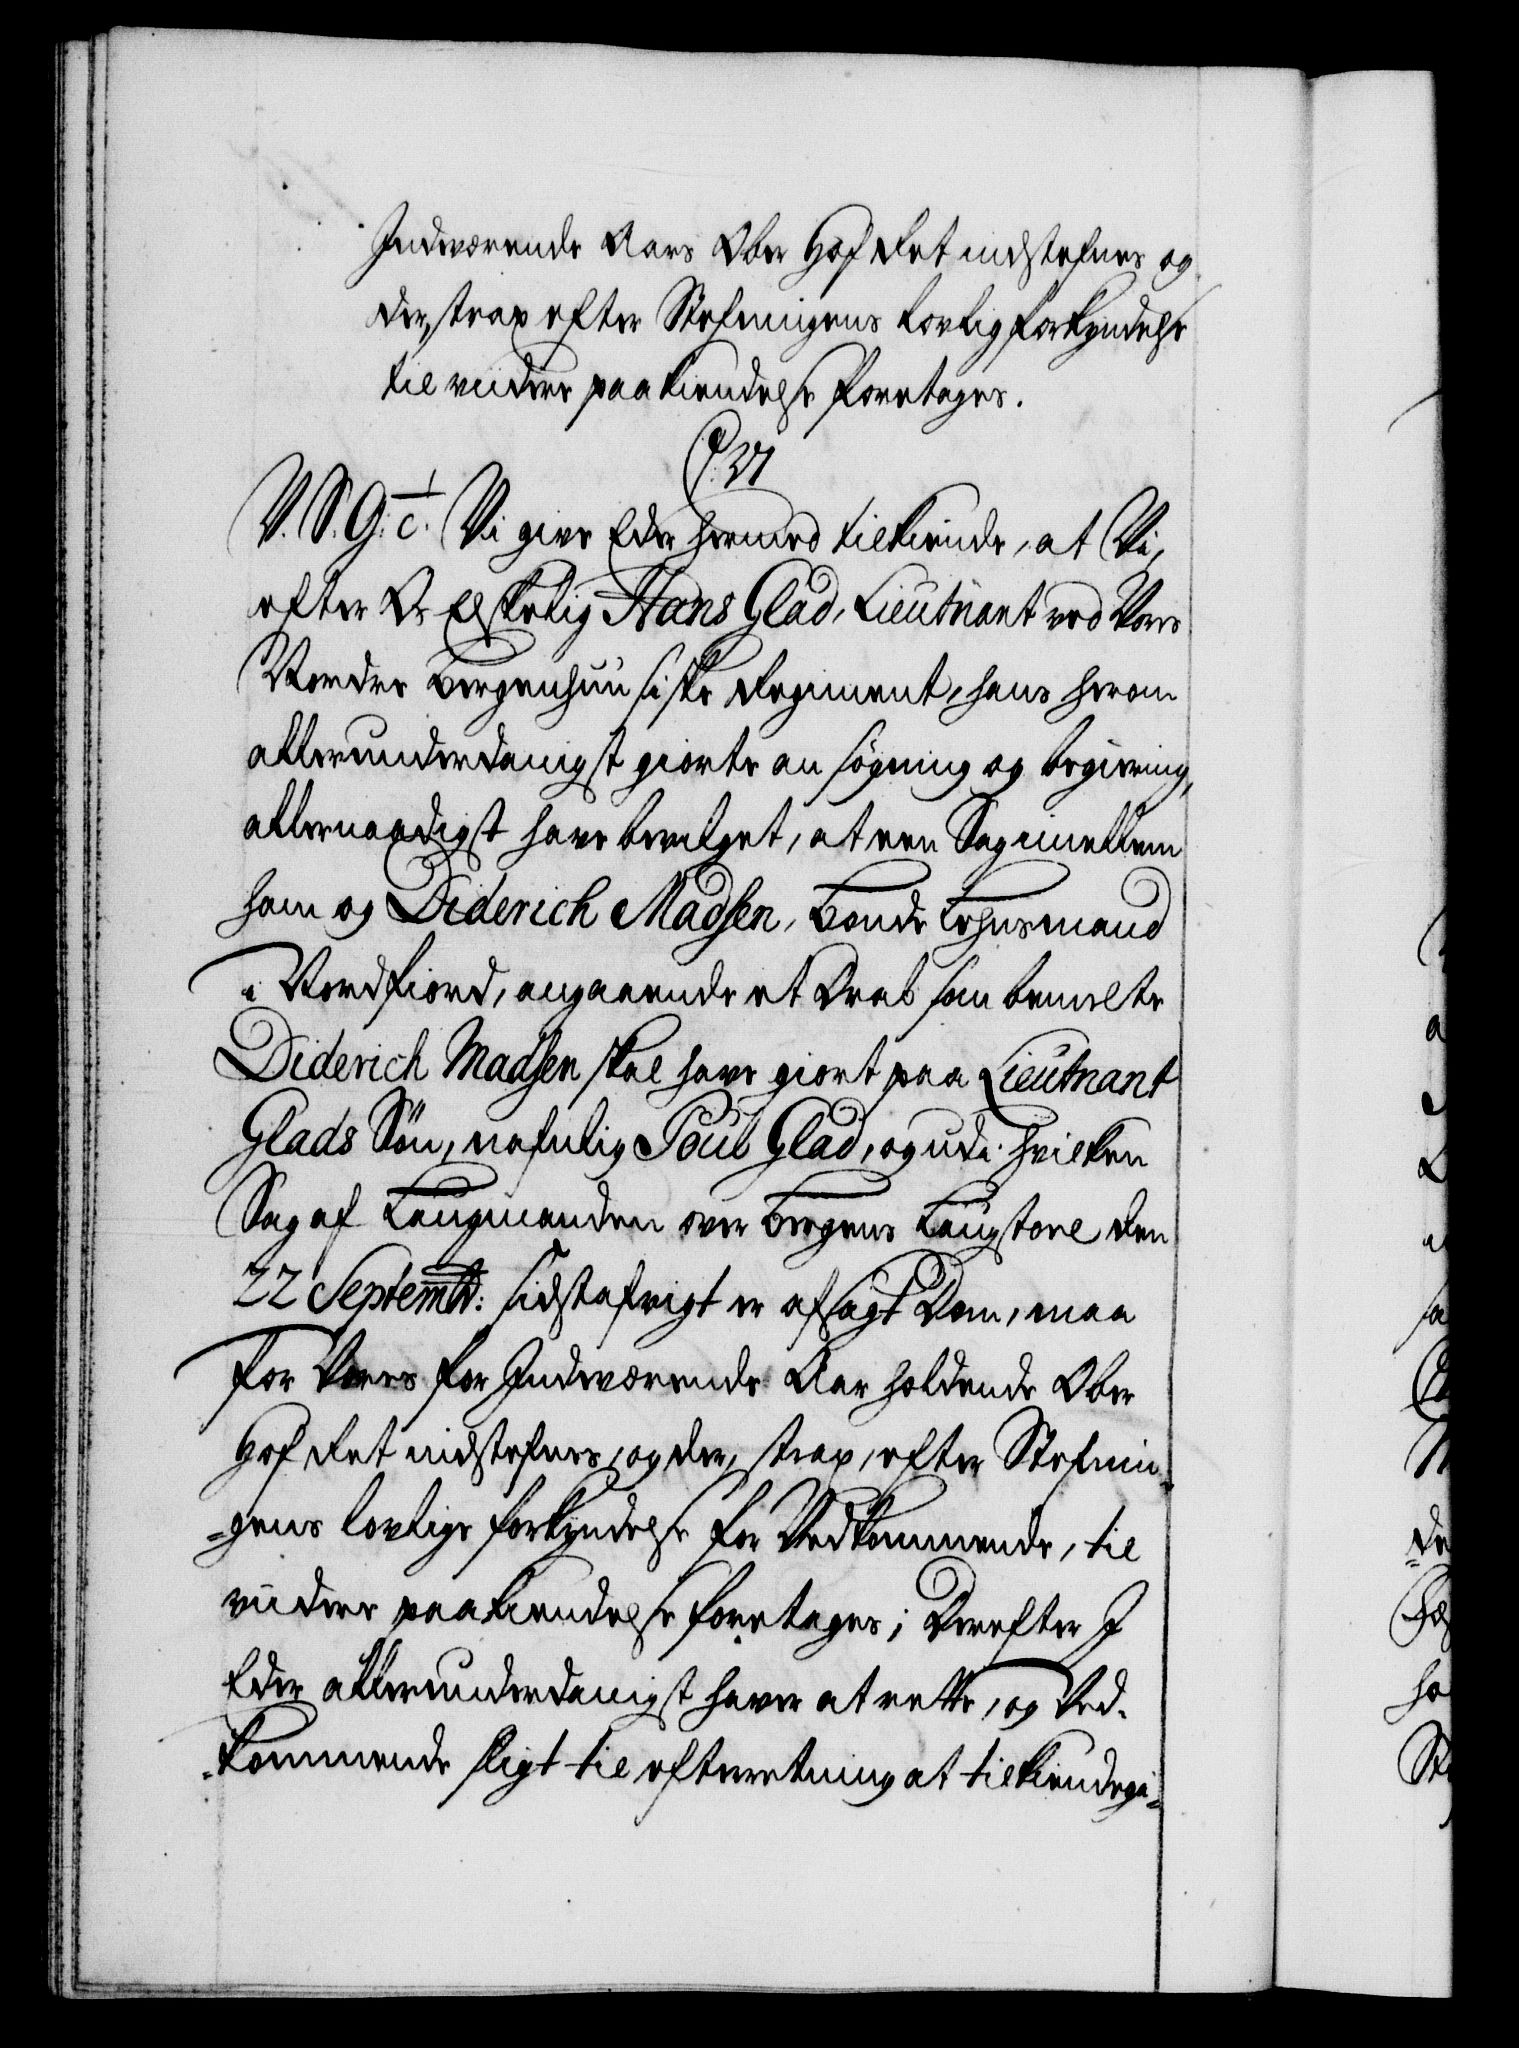 Indeværende Aars Ober Hof Ret indstefnes og
der, strax efter Stefningens lovlig forkyndelse
til viidere paakiendelse foretages.
C. VI
V. S. G. c. Vi give Eder hermed tilkiende, at Vi,
efter Os Elskelig Hans Glad, Lieutnant ved Vores
Norder Bergenhuusiske Regiment, hans herom
allerunderdanigst giorte ansøgning og begiering,
allernaadigst have bevilget, at een Sag imellem
ham og Diderich Madsen, Bonde Lehnsmand
i Nordfiord, angaaende et Drab som bemelte
Diderich Madsen skal have giort paa Lieutnant
Glads Søn, nafnlig Poul Glad, og udi hvilken
Sag af Laugmanden over Bergens Laugstoel den
22 Septembr: sidstafvigt er afsagt Dom, maa
for Vores for Indeværende Aar holdende Ober
Hof Ret indstefnes, og der, strax, efter Stefnin-
-gens lovlige forkyndelse for Vedkommende, til
viidere paakiendelse foretages; Derefter I
Eder allerunderdanigst haver at rette, og Ved-
-kommende sligt til efterretning at tilkiendegi-